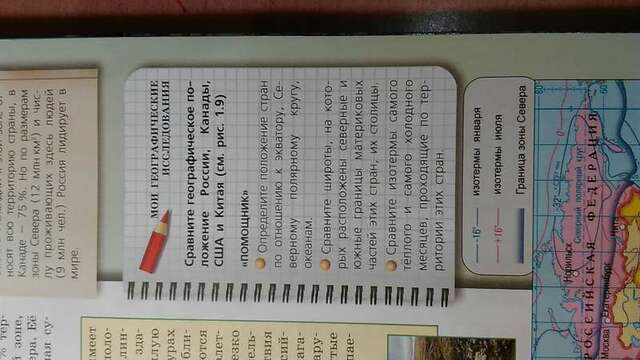 носят всю территорию страны, в
Канаде — 75 %. Но по размерам
зоны Севера (12 млн км²) и чис-
лу проживающих здесь людей
(9 млн чел.) Россия лидирует в
мире.
МОИ ГЕОГРАФИЧЕСКИЕ
ИССЛЕДОВАНИЯ
Сравните географическое по-
ложение России, Канады,
США и Китая (см. рис. 1.9)
«ПОМОЩНИК»
Определите положение стран
по отношению к экватору, Се-
верному полярному кругу,
океанам.
Сравните широты, на кото-
рых расположены северные и
южные границы материковых
частей этих стран, их столицы.
Сравните изотермы самого
теплого и самого холодного
месяцев, проходящие по тер-
ритории этих стран.
-16° изотермы января
+16° изотермы июля
Граница зоны Севера
60
60
-32°
Северный полярный круг
Норильск
РОССИЙСКАЯ ФЕДЕРАЦИЯ
Москва
Екатеринбург